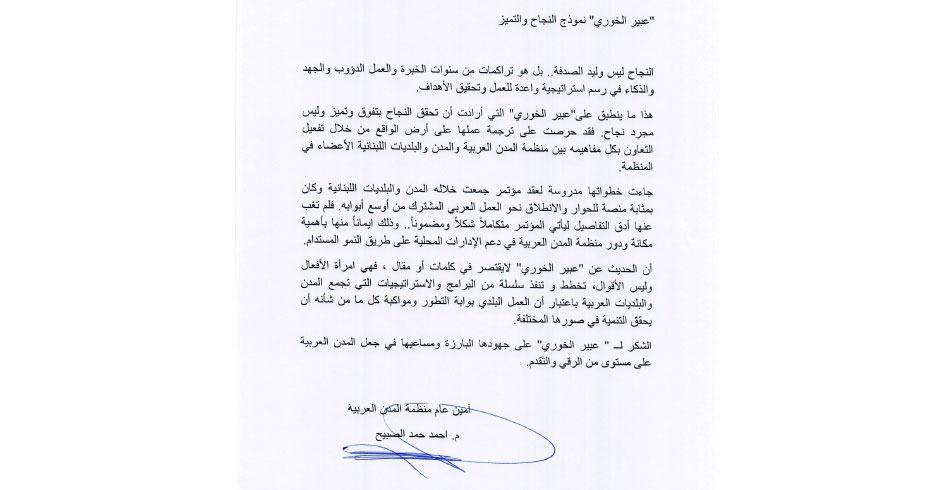 "عبير الخوري" نموذج النجاح والتميز
النجاح ليس وليد الصدفة.. بل هو تراكمات من سنوات الخبرة والعمل الدؤوب والجهد
والذكاء في رسم استراتيجية واعدة للعمل وتحقيق الأهداف.
هذا ما ينطبق على"عبير الخوري" التي أرادت أن تحقق النجاح بتفوق وتميز وليس
مجرد نجاح. فقد حرصت على ترجمة عملها على أرض الواقع من خلال تفعيل
التعاون بكل مفاهيمه بين منظمة المدن العربية والمدن والبلديات اللبنانية الأعضاء في
المنظمة.
جاءت خطواتها مدروسة لعقد مؤتمر جمعت خلاله المدن والبلديات اللبنانية وكان
بمثابة منصة للحوار والانطلاق نحو العمل العربي المشترك من أوسع أبوابه. فلم تغب
عنها أدق التفاصيل ليأتي المؤتمر متكاملاً شكلاً ومضموناً.. وذلك ايماناً منها بأهمية
مكانة ودور منظمة المدن العربية في دعم الإدارات المحلية على طريق النمو المستدام.
أن الحديث عن "عبير الخوري" لايقتصر في كلمات أو مقال ، فهي امرأة الأفعال
وليس الأقوال، تخطط و تنفذ سلسلة من البرامج والاستراتيجيات التي تجمع المدن
والبلديات العربية باعتبار أن العمل البلدي بوابة التطور ومواكبة كل ما من شأنه أن
يحقق التنمية في صورها المختلفة.
الشكر لــ " عبير الخوري" على جهودها البارزة ومساعيها في جعل المدن العربية
على مستوى من الرقي والتقدم.
أمين عام منظمة المدن العربية
م. احمد حمد الصبيح